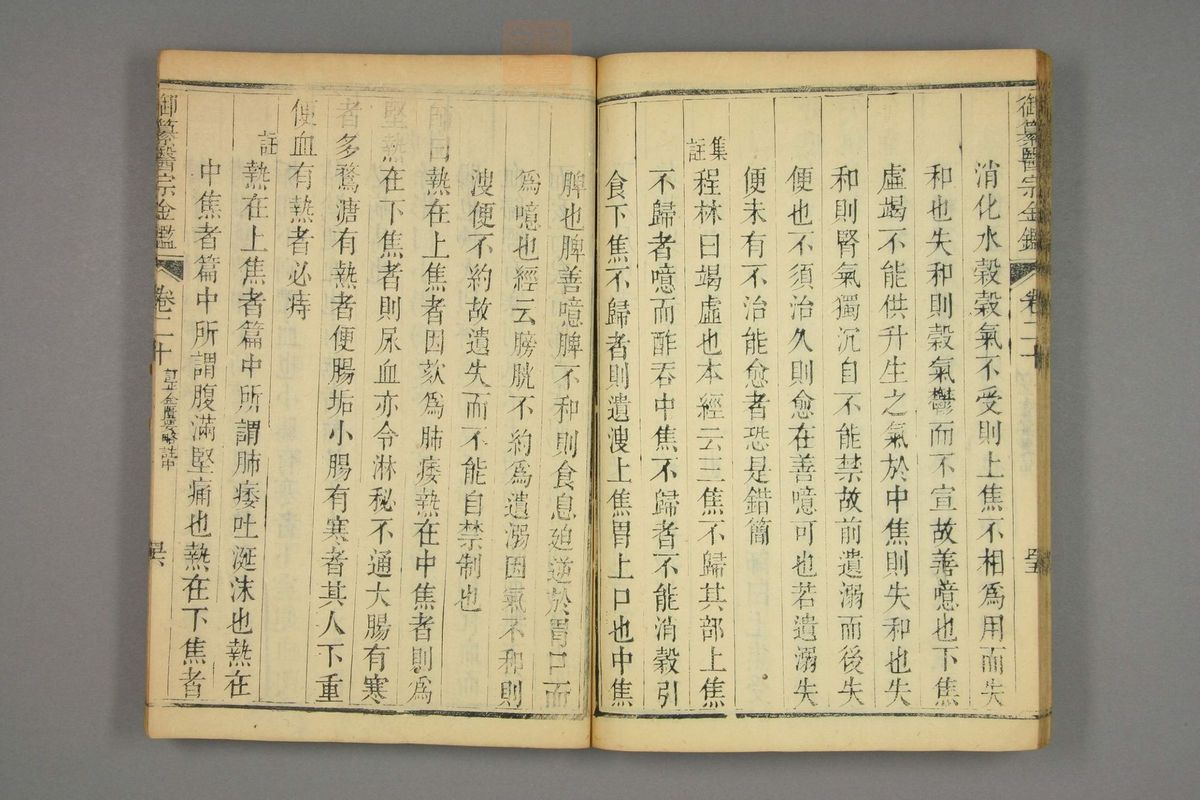 御纂醫宗金鑑 卷二十
消化水穀穀氣不受則上焦不相爲用而失
和也失和則穀氣鬱而不宣故善噫也下焦
虛竭不能供升生之氣於中焦則失和也失
和則腎氣獨沉自不能禁故前遺溺而後失
便也不須治久則愈在善噫可也若遺溺失
便未有不治能愈者恐是錯簡
集註程林曰竭虛也本經云三焦不歸其部上焦
不歸者噫而酢吞中焦不歸者不能消穀引
食下焦不歸者則遺溲上焦胃上口也中焦
脾也脾善噫脾不和則食息迫逆於胃口而
爲噫也經云膀胱不約爲遺溺因氣不和則
溲便不約故遺失而不能自禁制也
師曰熱在上焦者因欬爲肺痿熱在中焦者則爲
堅熱在下焦者則尿血亦令淋秘不通大腸有寒
者多鶩溏有熱者便腸垢小腸有寒者其人下重
便血有熱者必痔
註熱在上焦者篇中所謂肺痿吐涎沫也熱在
中焦者篇中所謂腹滿堅痛也熱在下焦者
御纂醫宗金鑑 卷二十 訂正金匱要略註中